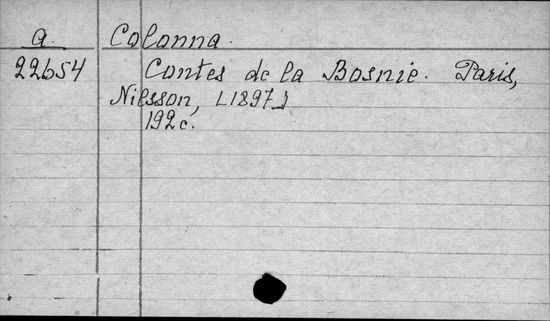 a. Colonna.
22654 Contes de la Bosnie. Paris,
Nilsson, [1897]
192 c.